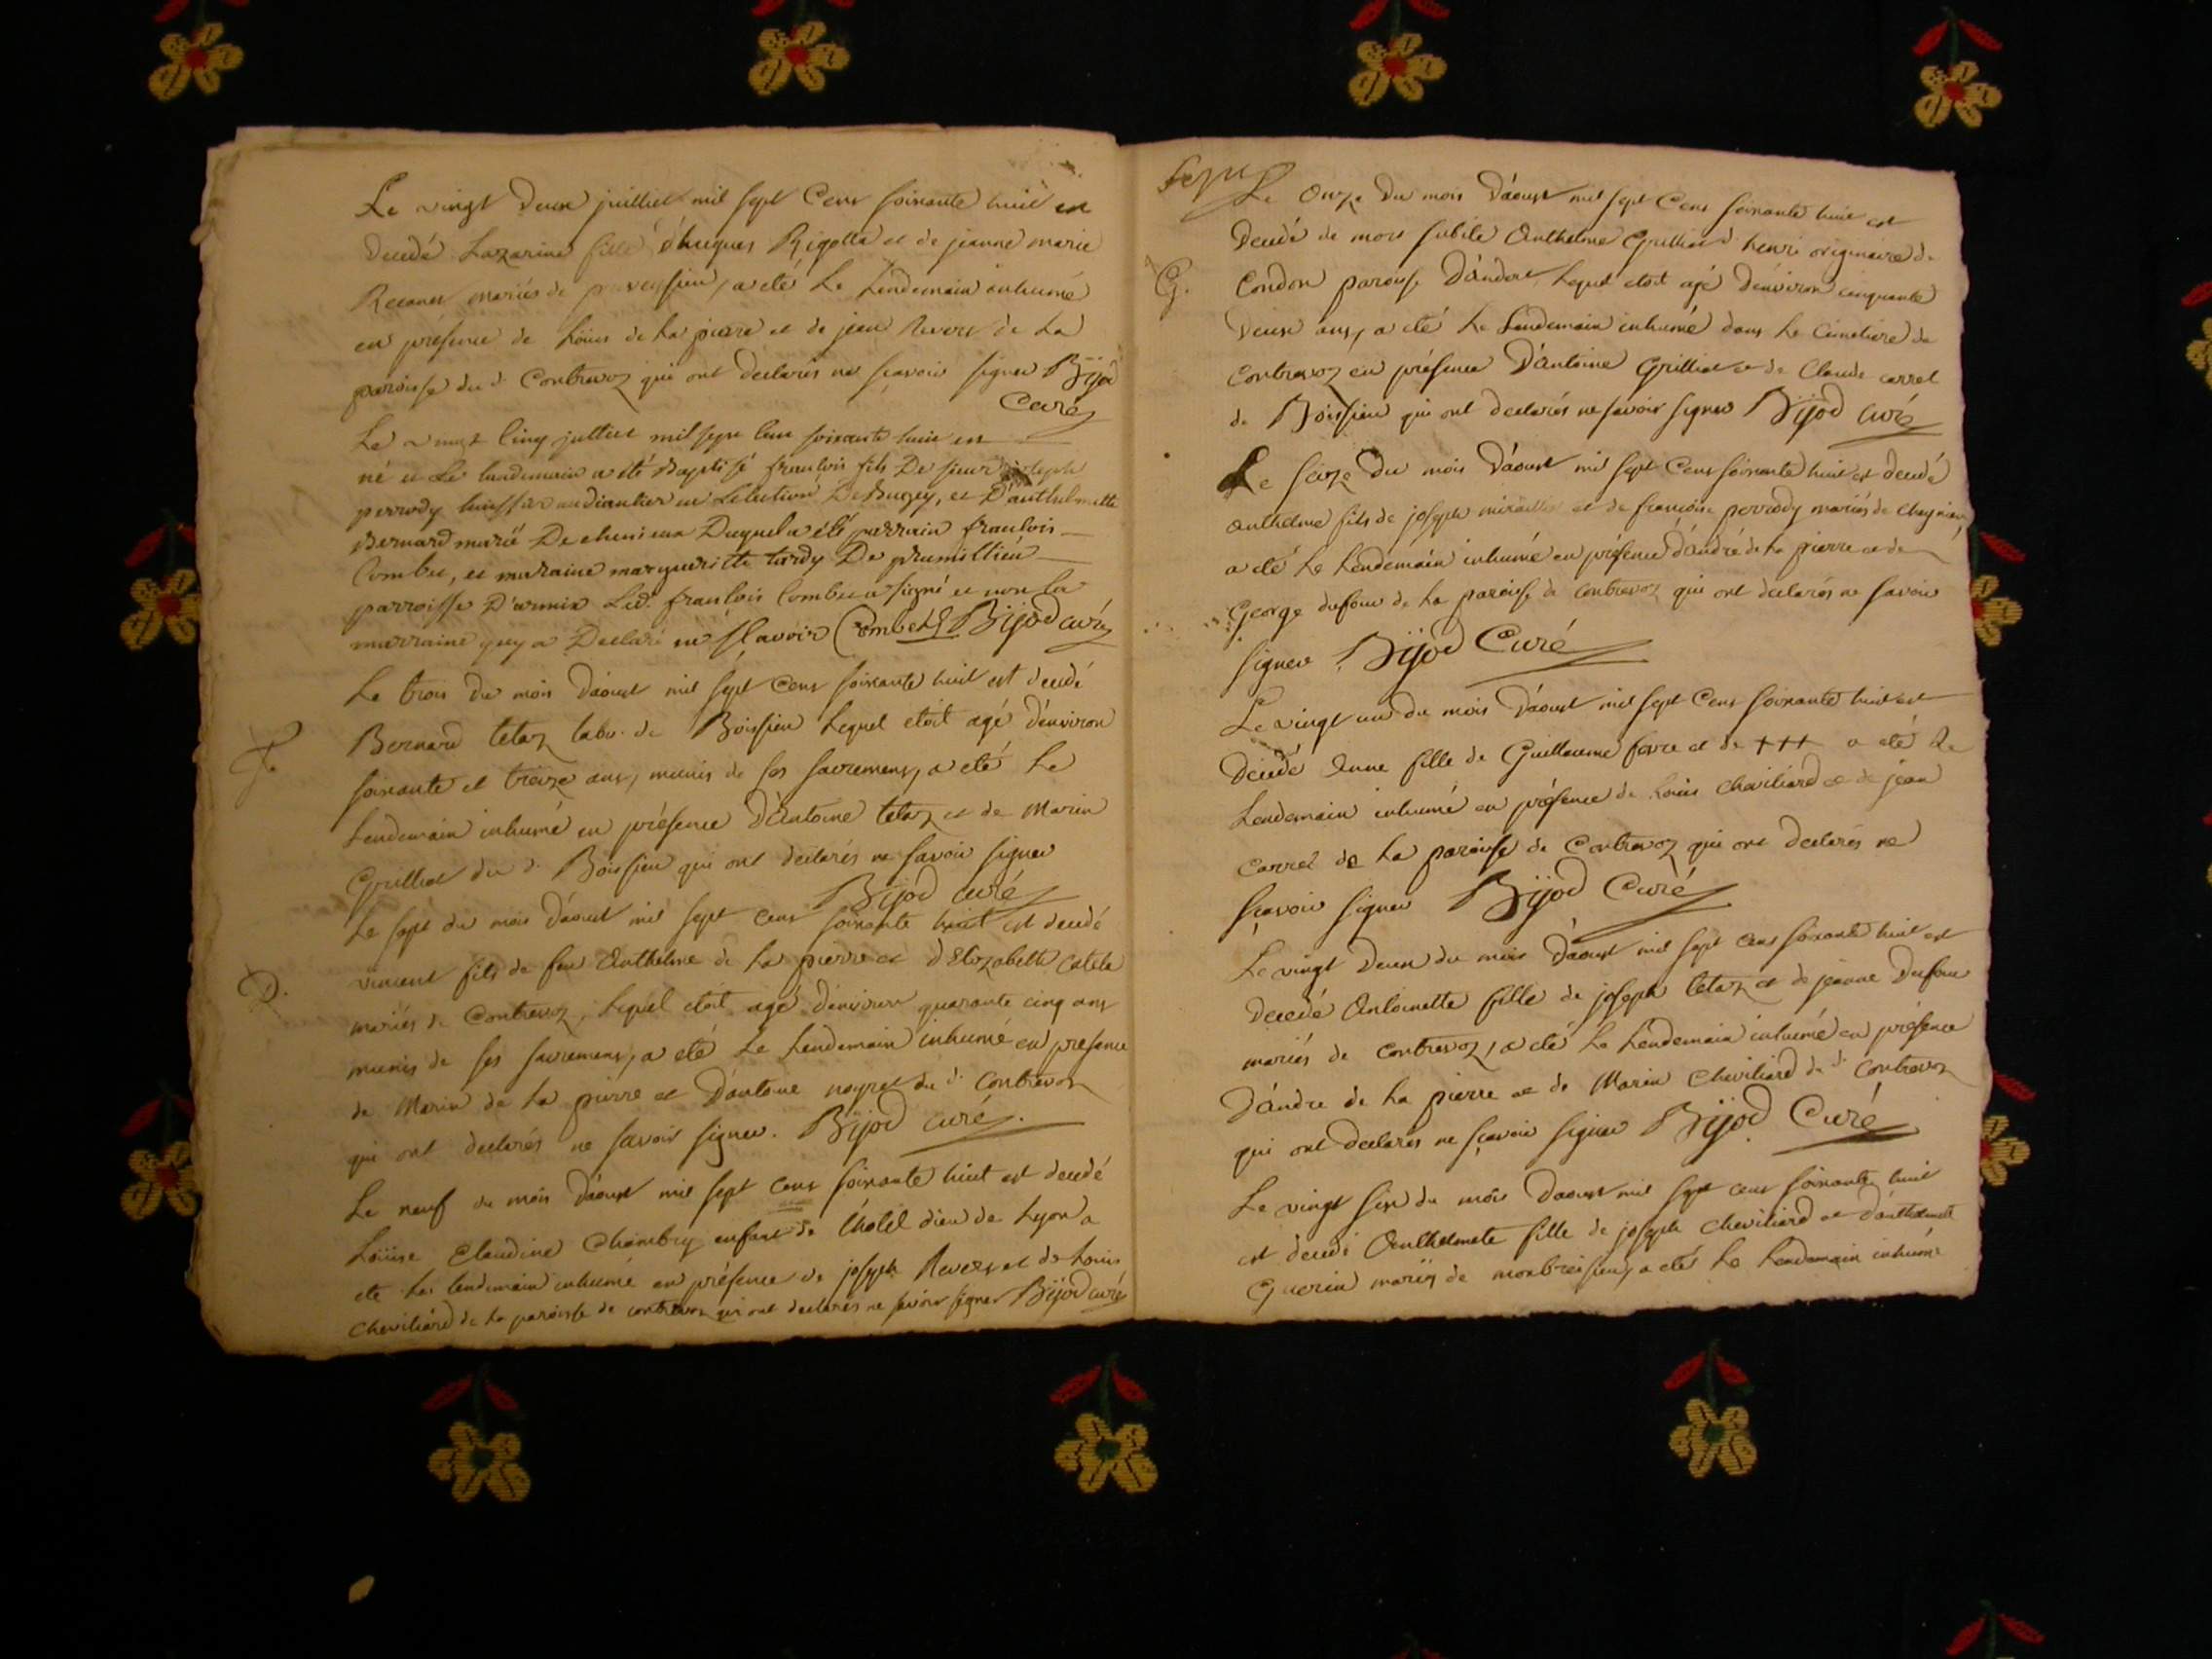 Le vingt deux juilliet mil sept Cens soixante huit est
decedé Lazarine fille d'hugues Rigollet et de jeanne marie
mariés de a eté le Lendemain inhumé
en présence de Loüis de la pierre et de jean Revers de la
paroisse du d. Contrevoz qui ont declarés ne sçavoir signer Bijod
Curé
Le vingt cinq julliet mil sept cens soixante huit est
né et le landemain a été Baptisé françois fils De sieur joseph
perrody huissier audiantier en Lelection De Bugey, et D'anthelmette
Bernard marié De chenieux Duquel a été parrain françois
Combet, et maraine margueritte tardy De prumillieu
parroisse D'armix Led. françois Combet a signé et non la
marraine quy a Declaré ne sçavoir Combet Bijod curé
Le trois du mois d'aoust mil sept Cens soixante huit est decedé
T.
Bernard tetaz labr. de Boissieu Lequel etoit agé d'environ
soixante et treize ans, munis de ses sacremens, a eté le
Lendemain inhumé en présence d'Antoine tetaz et de Marin
Grilliet du d. Boissieu qui ont declarés ne savoir signer
Bijod curé
Le sept du mois d'aoust mil sept cens soixante huit est decedé
D.
vincent fils de feu Anthelme de la pierre et d'Elizabette
mariés de Contrevoz, lequel etoit agé d'environ quarante cinq ans
munis de ses sacremens, a eté le Lendemain inhumé en presence
de Marin de la pierre et d'antoine neyret du d. Contrevoz
qui ont declarés ne savoir signer. Bijod curé.
Le neuf du mois d'aoust mil sept cens soixante huit est decedé
Loüise Claudine Chambry enfant de l'hotel dieu de Lyon a
eté Le lendemain inhumé en présence de joseph Revers et de Louis
Cheviliard de la paroisse de contrevoz qui ont declarés ne savoir signer Bijod curé
sept
Le onze du mois d'aoust mil sept Cens soixante huit est
decedé de mort subite Anthelme Grilliet d. henri originaire de
G.
Condon paroisse d'andert, lequel etoit agé d'environ cinquante
deux ans, a eté le Lendemain inhumé dans le Cimetiere de
contrevoz en présence d'Antoine Grilliet et de Claude carrel
de Boissieu qui ont declarés ne savoir signer Bijod curé
Le seize du mois d'aoust mil sept Cens soixante huit est decedé
anthelme fils de joseph et de françoise perrody mariés de
a eté le Lendemain inhumé en présence d'André de la pierre et de
George dufour de la paroisse de contrevoz qui ont declarés ne savoir
signer Bijod Curé
Le vingt un du mois d'aoust mil sept Cens soixante huit est
decedé Anne fille de Guillaume favre et de +++ a eté le
Lendemain inhumé en présence de Louis cheviliard et de jean
Carrel de la paroisse de Contrevoz qui ont declarés ne
sçavoir signer Bijod Curé
Le vingt deux du mois d'aoust mil sept cens soixante huit est
decedé Antoinette fille de joseph tetaz et de jeanne Dufour
mariés de contrevoz, a eté le Lendemain inhumé en présence
d'André de la pierre et de Marin cheviliard du d. Contrevoz
qui ont declarés ne sçavoir signer Bijod Curé
Le vingt six du mois d'aoust mil sept cens soixante huit
est decedé Anthelmete fille de joseph cheviliard et d'anthelmete
Guerin mariés de montbreisieu, a eté le Lendemain inhumé